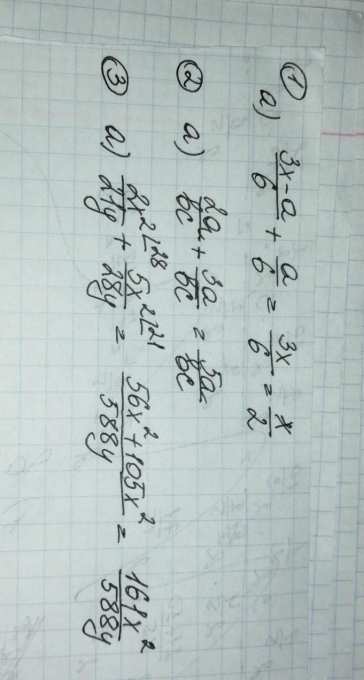 ① а) (3x-a)/6 + a/6 = 3x/6 = x/2
② а) 2a/bc + 3a/bc = 5a/bc
③ а) 2x²⌊28/21y + 5x²⌊21/28y = (56x²+105x²)/588y = 161x²/588y